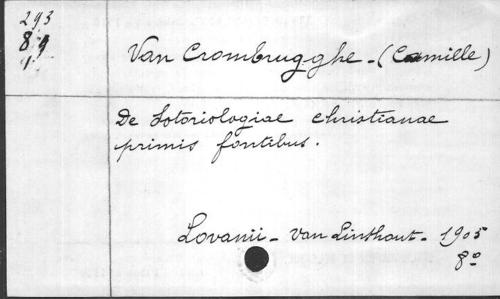 293
8 9
1
Van Crombrugghe - (Camille)
De Sotoriologiae christianae
primis fontibus.
Lovanii - Van Linthout - 1905
8º